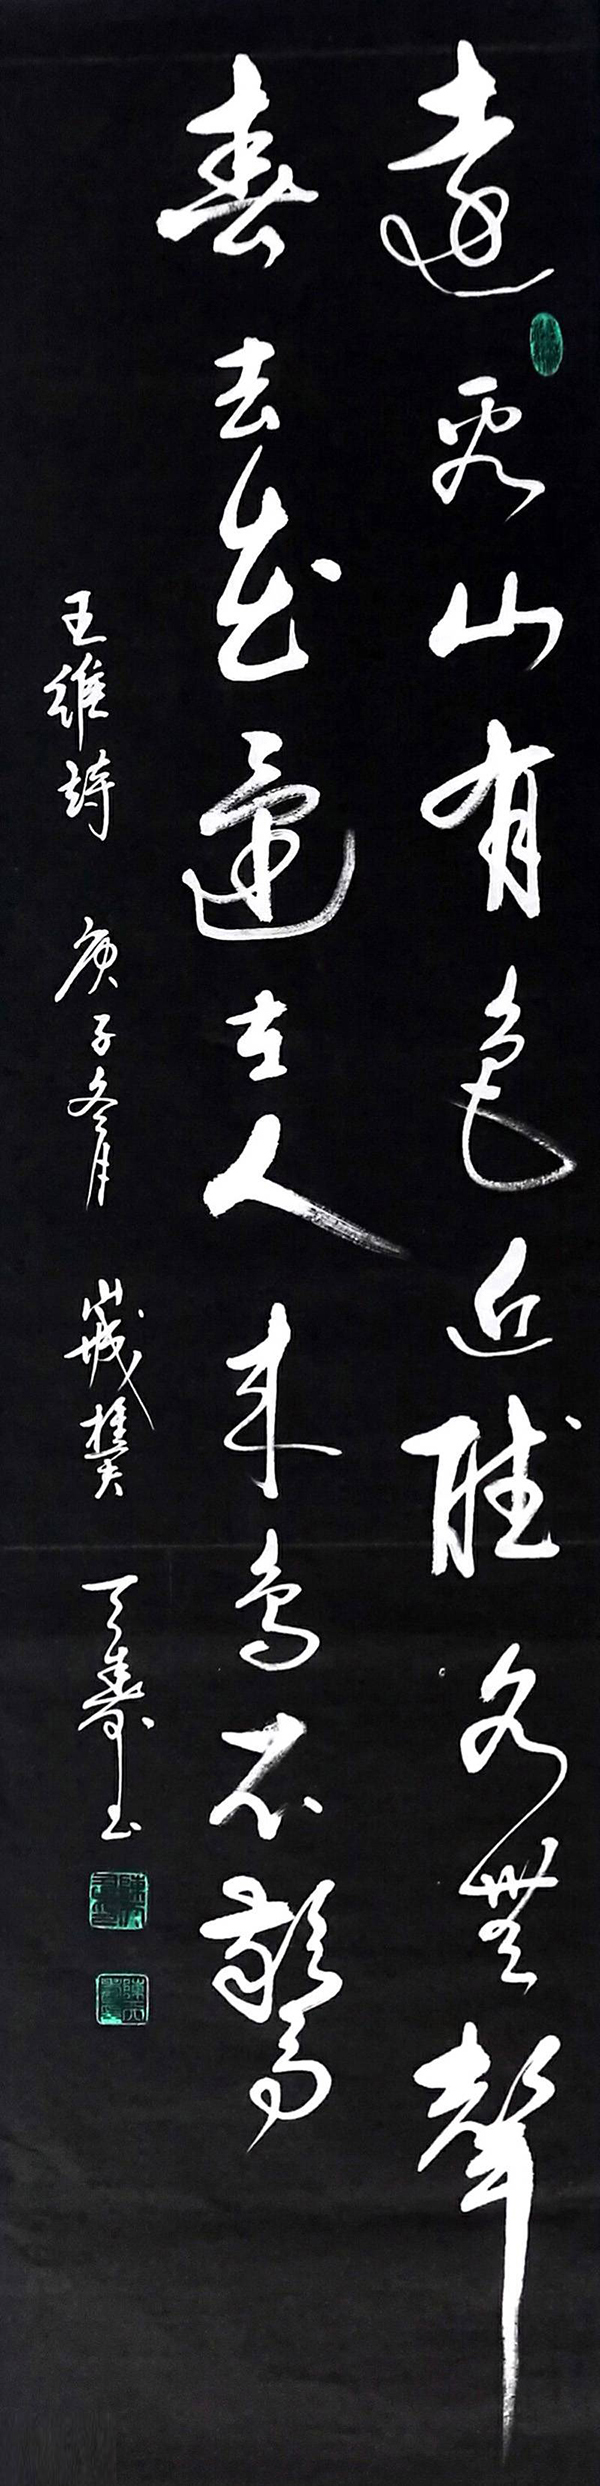 遠看山有色近聽水無聲
春去花還在人來鳥不驚
王維詩 庚子冬月 天壽书